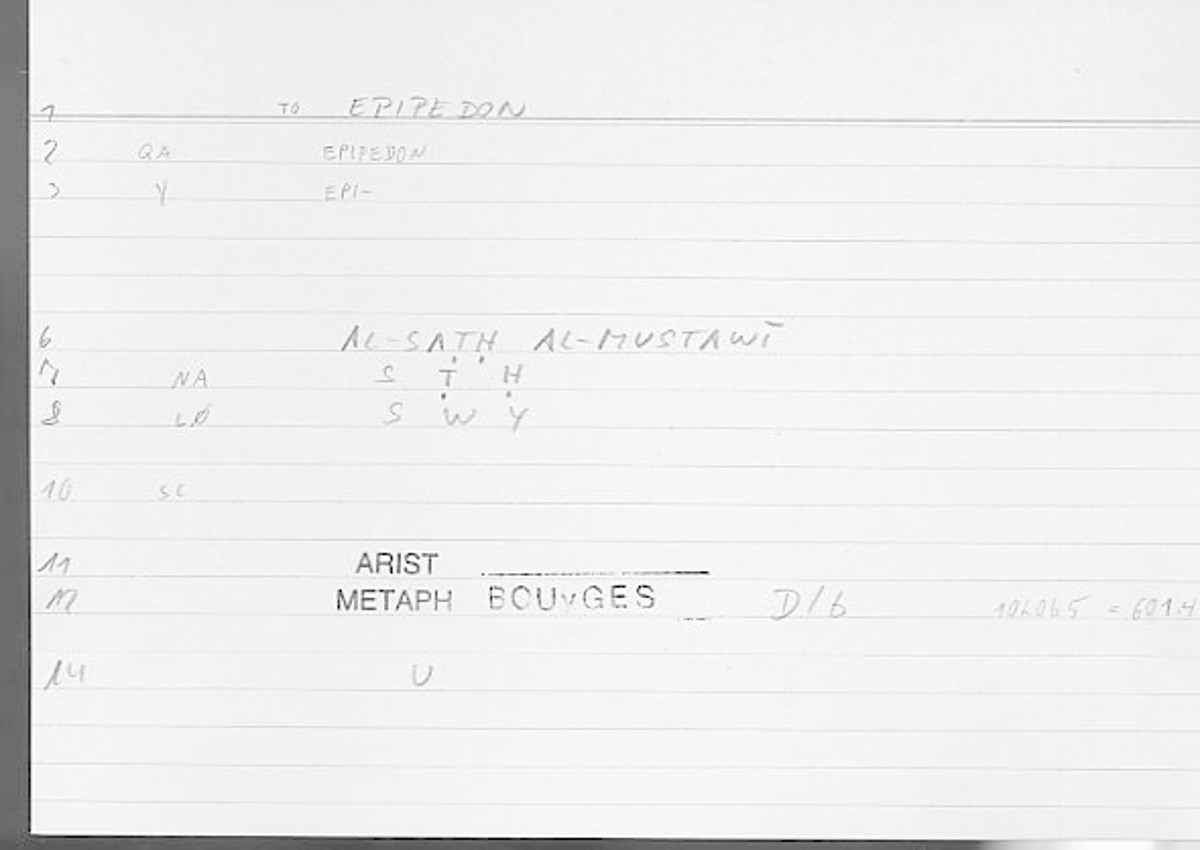 1 TO EPIPEDON
2 QA EPIPEDON
3 Y EPI-
6 AL-SAṬḤ AL-MUSTAWĪ
7 NA S Ṭ Ḥ
8 LØ S W Y
10 SC
11 ARIST
12 METAPH BOUYGES D/6 = 601.4
14 U